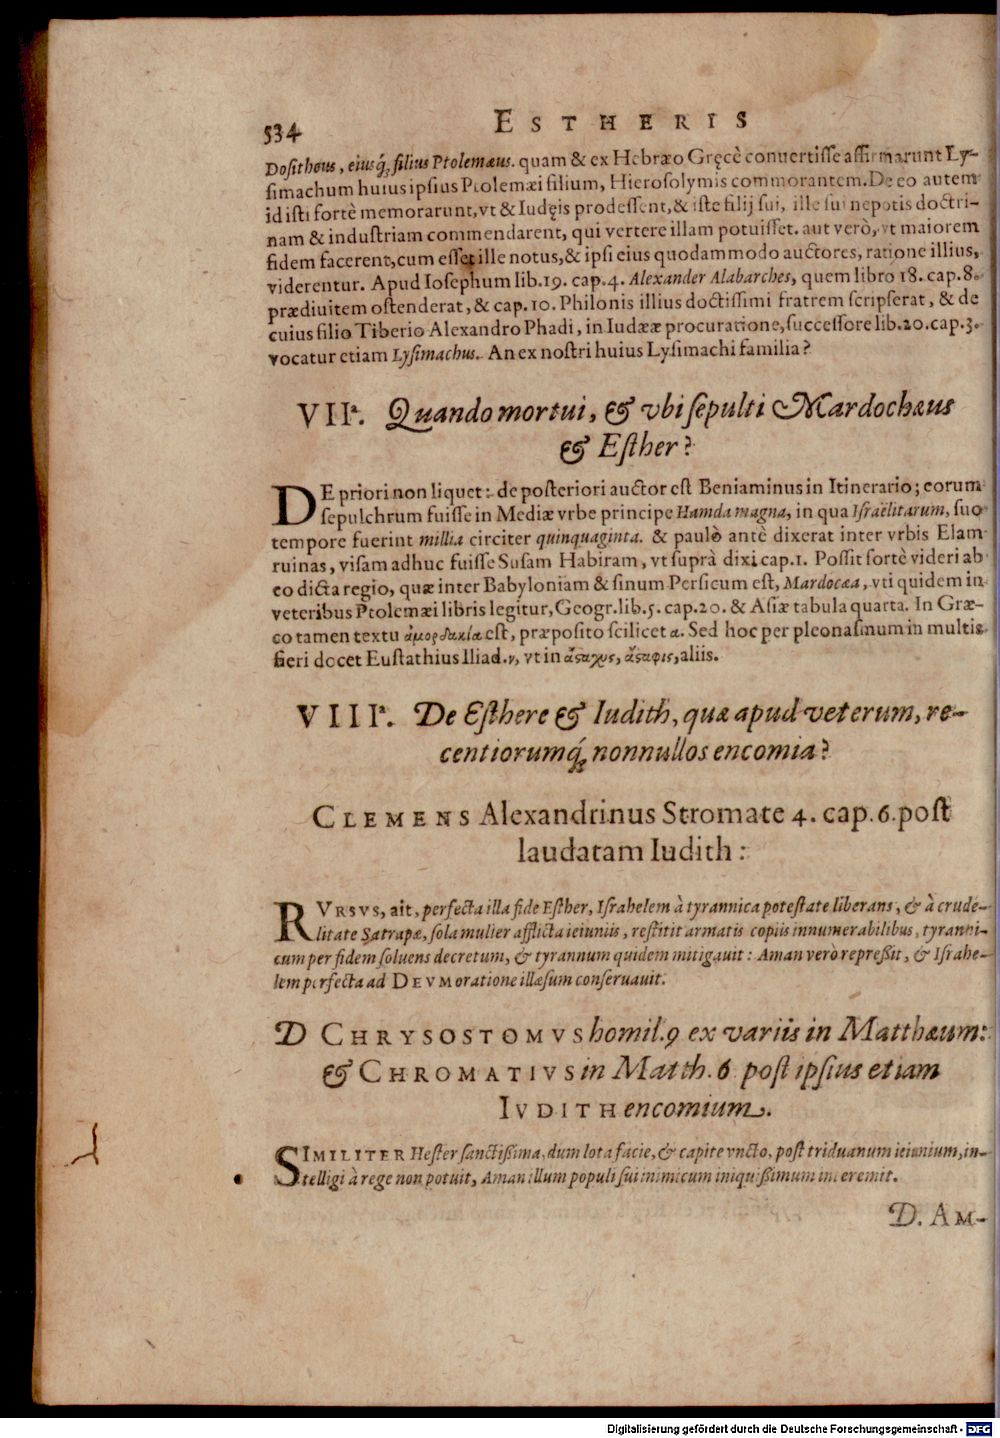 534
ESTHERIS
Dositheus, eiusq́; filius Ptolemæus. quam & ex Hebræo Gręcè conuertisse affirmarunt Ly-
simachum huius ipsius Ptolemæi filium, Hierosolymis commorantem. De eo autem
id isti fortè memorarunt, vt & Iudęis prodessent, & iste filij sui, ille sui nepotis doctri-
nam & industriam commendarent, qui vertere illam potuisset. aut verò, vt maiorem
fidem facerent, cum esset ille notus, & ipsi eius quodammodo auctores, ratione illius,
viderentur. Apud Iosephum lib. 19. cap. 4. Alexander Alabarches, quem libro 18. cap. 8.
prædiuitem ostenderat, & cap. 10. Philonis illius doctissimi fratrem scripserat, & de
cuius filio Tiberio Alexandro Phadi, in Iudææ procuratione, successore lib. 20. cap. 3.
vocatur etiam Lysimachus. An ex nostri huius Lysimachi familia?
VIIª. Quando mortui, & vbi sepulti Mardochæus
& Esther?
DE priori non liquet: de posteriori auctor est Beniaminus in Itinerario; eorum
sepulchrum fuisse in Mediæ vrbe principe Hamda magna, in qua Israëlitarum, suo
tempore fuerint millia circiter quinquaginta. & paulò antè dixerat inter vrbis Elam
ruinas, visam adhuc fuisse Susam Habiram, vt suprà dixi cap. 1. Possit fortè videri ab
eo dicta regio, quæ inter Babyloniam & sinum Persicum est, Mardocæa, vti quidem in
veteribus Ptolemæi libris legitur, Geogr. lib. 5. cap. 20. & Asiæ tabula quarta. In Græ-
co tamen textu ἀμορδακία est, præposito scilicet α. Sed hoc per pleonasmum in multis
fieri docet Eustathius Iliad. ν, vt in ἄσαχυς, ἄσαφις, aliis.
VIIIª. De Esthere & Iudith, quæ apud veterum, re-
centiorumq́; nonnullos encomia?
CLEMENS Alexandrinus Stromate 4. cap. 6. post
laudatam Iudith:
RVRSVS, ait, perfecta illa fide Esther, Israhelem à tyrannica potestate liberans, & à crude-
litate Satrapæ, sola mulier afflicta ieiuniis, restitit armatis copiis innumerabilibus, tyranni-
cum per fidem soluens decretum, & tyrannum quidem mitigauit: Aman verò repreßit, & Israhe-
lem perfecta ad DEVM oratione illæsum conseruauit.
D CHRYSOSTOMVS homil. 9 ex variis in Matthæum:
& CHROMATIVS in Matth. 6 post ipsius etiam
IVDITH encomium.
SIMILITER Hester sanctißima, dum lota facie, & capite vncto, post triduanum ieiunium, in-
telligi à rege non potuit, Aman illum populi sui inimicum iniquißimum interemit.
D. AM-
Digitalisierung gefördert durch die Deutsche Forschungsgemeinschaft - DFG